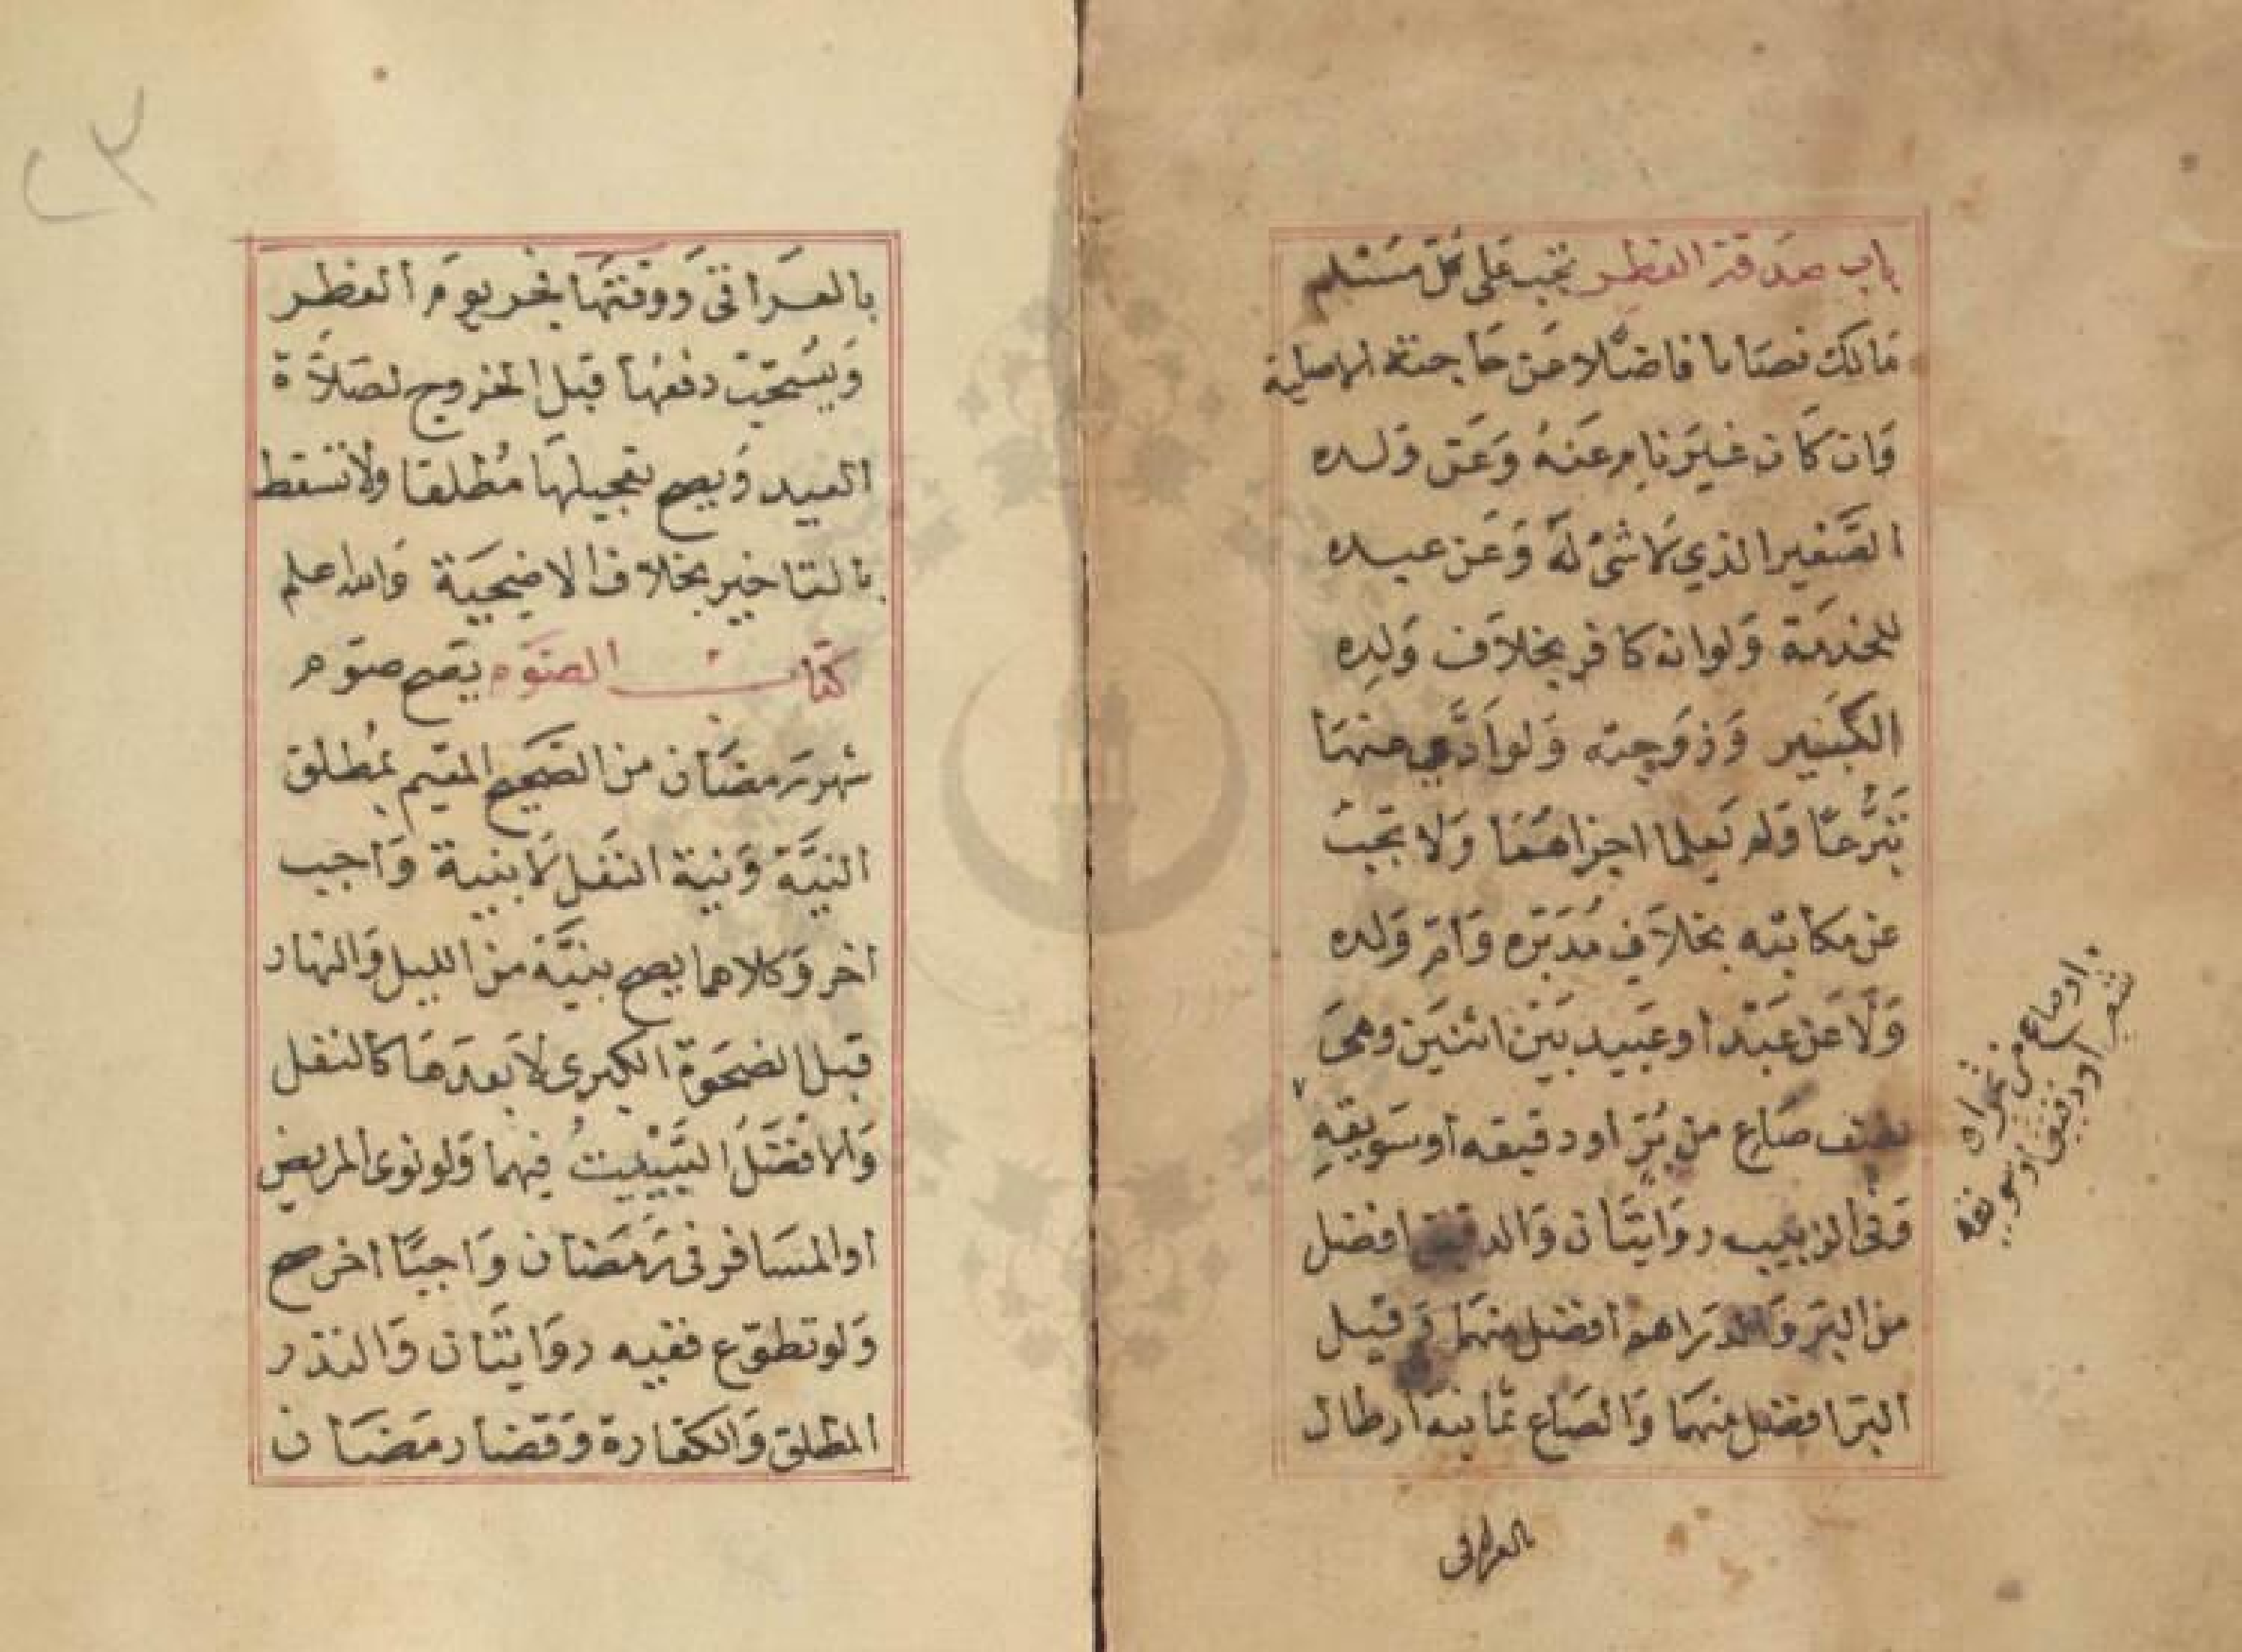 باب صدقة الفطر تجب على كل مسلم
مالك نصابا فاضلا عن حاجته الاصلية
وان كان غير نام عنه وعن ولده
الصغير الذي لا شئ له وعن عبده
للخدمة ولو انه كافر بخلاف ولده
الكبير وزوجته ولو ادي منهما
تبرعا ولم يعلما اجزاهما ولا تجب
عن مكاتبه بخلاف مدبره وام ولده
ولا عن عبد او عبيد بين اثنين وهى
نصف صاع من بر او دقيقه او سويقه
وفى الزبيب روايتان والدقيق افضل
من البر والدراهم افضل منهما وقيل
البر افضل منهما والصاع ثمانية ارطال
بالعراقى
او صاع من تمر او
شعير او دقيق او سويقه
٢٣
بالعراقى ووقتها فجر يوم الفطر
ويستحب دفعها قبل الخروج لصلاة
العيد ويصح تعجيلها مطلقا ولا تسقط
بالتاخير بخلاف الاضحية والله اعلم
كتاب الصوم يصح صوم
شهر رمضان من الصحيح المقيم بمطلق
النية ونية النفل لا بنية واجب
اخر وكلاهما يصح بنية من الليل والنهار
قبل الضحوة الكبرى لا بعدها كالنفل
والافضل التبييت فيهما ولو نوى المريض
او المسافر فى رمضان واجبا اخر صح
ولو تطوع ففيه روايتان والنذر
المطلق والكفارة وقضا رمضان